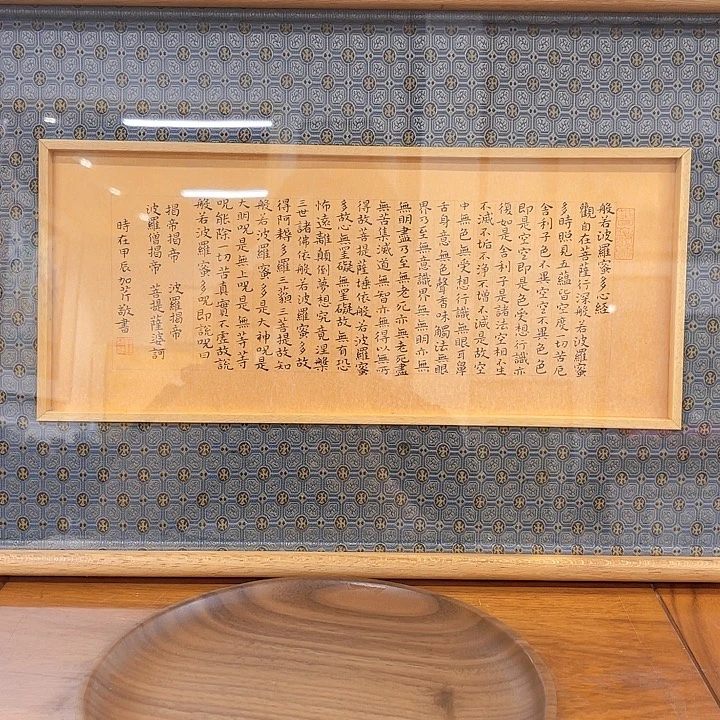 般若波羅蜜多心經
觀自在菩薩行深般若波羅蜜
多時照見五蘊皆空度一切苦厄
舍利子色不異空空不異色色
即是空空即是色受想行識亦
復如是舍利子是諸法空相不生
不滅不垢不淨不增不減是故空
中無色無受想行識無眼耳鼻
舌身意無色聲香味觸法無眼
界乃至無意識界無無明亦無
無明盡乃至無老死亦無老死盡
無苦集滅道無智亦無得以無所
得故菩提薩埵依般若波羅蜜
多故心無罣礙無罣礙故無有恐
怖遠離顛倒夢想究竟涅槃
三世諸佛依般若波羅蜜多故
得阿耨多羅三藐三菩提故知
般若波羅蜜多是大神呪是
大明呪是無上呪是無等等
呪能除一切苦真實不虛故說
般若波羅蜜多呪即說呪曰
揭帝揭帝 波羅揭帝
波羅僧揭帝 菩提薩婆訶
時在甲辰 敬書